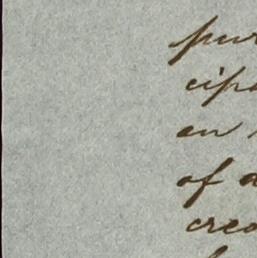 pur
cipa
an
of a
crea